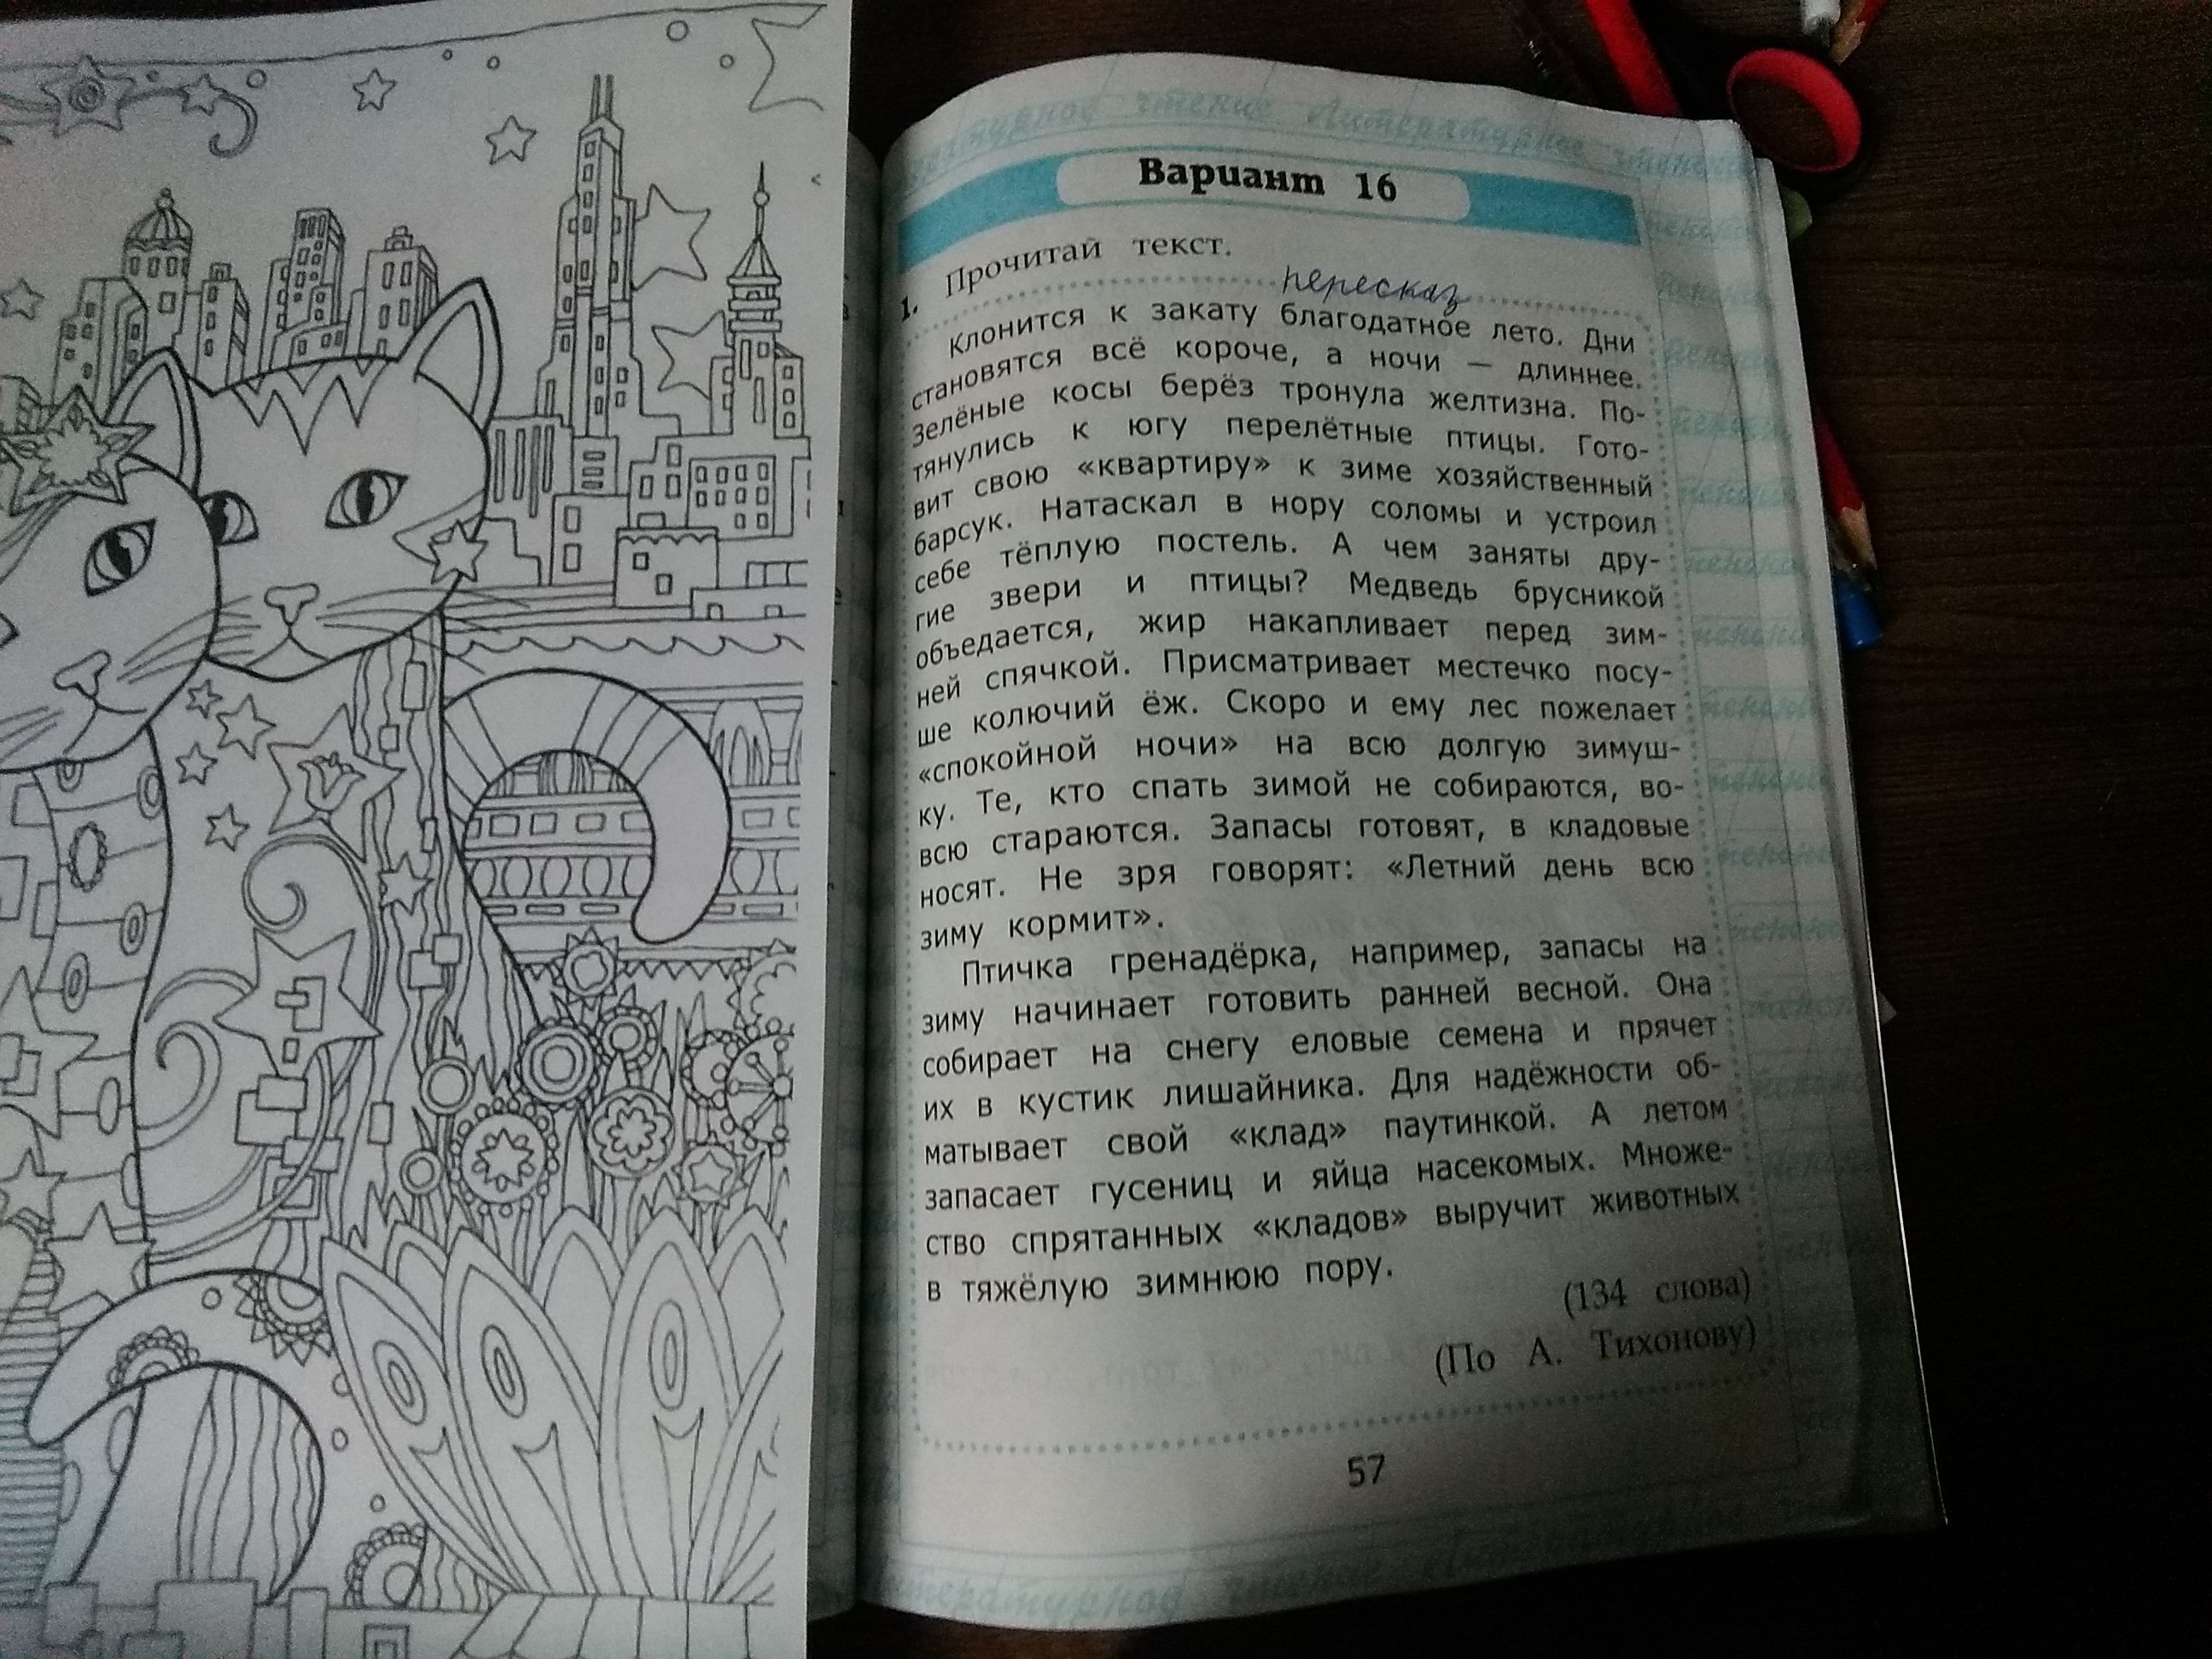 Литературное чтение Литературное чтение
Вариант 16
1. Прочитай текст.
пересказ
Клонится к закату благодатное лето. Дни
становятся всё короче, а ночи — длиннее.
Зелёные косы берёз тронула желтизна. По-
тянулись к югу перелётные птицы. Гото-
вит свою «квартиру» к зиме хозяйственный
барсук. Натаскал в нору соломы и устроил
себе тёплую постель. А чем заняты дру-
гие звери и птицы? Медведь брусникой
объедается, жир накапливает перед зим-
ней спячкой. Присматривает местечко посу-
ше колючий ёж. Скоро и ему лес пожелает
«спокойной ночи» на всю долгую зимуш-
ку. Те, кто спать зимой не собираются, во-
всю стараются. Запасы готовят, в кладовые
носят. Не зря говорят: «Летний день всю
зиму кормит».
Птичка гренадёрка, например, запасы на
зиму начинает готовить ранней весной. Она
собирает на снегу еловые семена и прячет
их в кустик лишайника. Для надёжности об-
матывает свой «клад» паутинкой. А летом
запасает гусениц и яйца насекомых. Множе-
ство спрятанных «кладов» выручит животных
в тяжёлую зимнюю пору.
(134 слова)
(По А. Тихонову)
57
Литературное чтение